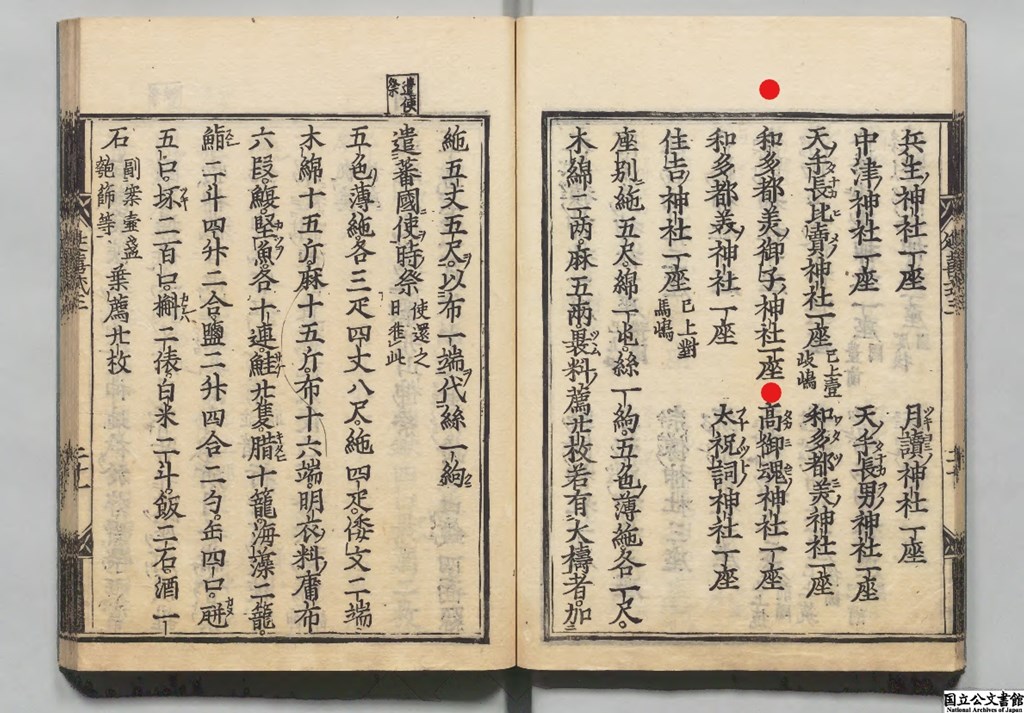 兵主神社一座 月讀神社一座
中津神社一座 天手長男神社一座
天手長比賣神社一座已上壹岐嶋 和多都美神社一座
和多都美御子神社一座 高御魂神社一座
和多都美神社一座 太祝詞神社一座
住吉神社一座已上對馬嶋
座別絁五尺綿一屯絲一絇五色薄絁各一尺
木綿二兩麻五兩褁料薦廿枚若有大禱者加
絁五丈五尺以布一端代絲一絇
遣使祭
遣蕃國使時祭使還之日准此
五色薄絁各三疋四丈八尺絁四疋倭文二端
木綿十五斤麻十五斤布十六端明衣料庸布
六段鰒堅魚各十連鮭廿隻腊十籠海藻二籠
鮨二斗四升二合鹽二升四合二勺缶四口𤭖
五口坏二百口槲二俵白米二斗飯二石酒一
石副案壷盆匏篩等乗薦廿枚
延喜式三
国立公文書館
National Archives of Japan